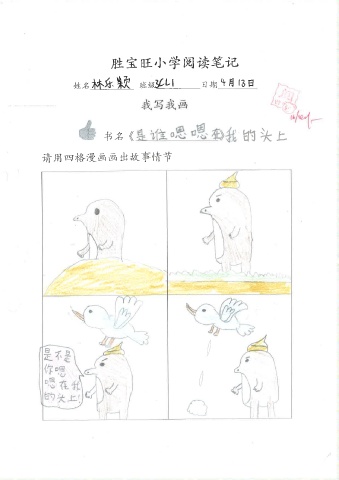 胜宝旺小学阅读笔记
姓名 林乐颖 班级 3CL1 日期 4月13日
我写我画
书名《是谁嗯嗯在我的头上
请用四格漫画画出故事情节
是不是
你嗯
嗯在我
的头上!